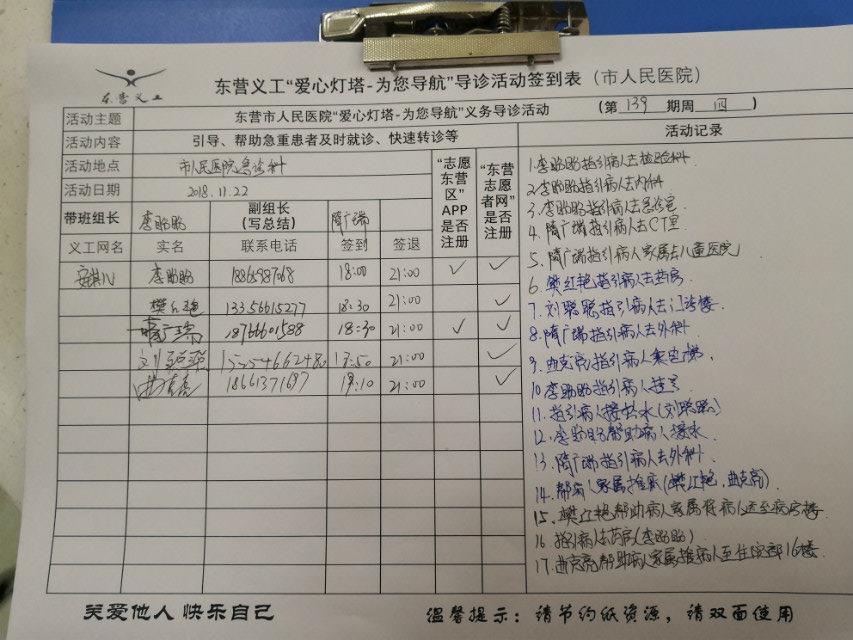 东营义工
东营义工“爱心灯塔-为您导航”导诊活动签到表（市人民医院）
活动主题 东营市人民医院“爱心灯塔-为您导航”义务导诊活动 （第 139 期周 四 ）
活动内容 引导、帮助急重患者及时就诊、快速转诊等 活动记录
活动地点 市人民医院急诊科 “志愿东营区”APP是否注册 “东营志愿者网”是否注册
活动日期 2018.11.22
带班组长 李盼盼 副组长（写总结） 隋广瑞
义工网名 实名 联系电话 签到 签退
李盼盼 18:00 21:00 ✓ ✓
樊红艳 13356615277 18:30 21:00 ✓
隋广瑞 18766601588 18:30 21:00 ✓ ✓
刘聪聪 21:00 ✓
曲克亮 18661371697 21:00 ✓
1.李盼盼指引病人去检验科
2.李盼盼指引病人去内科
3.李盼盼指引病人去急诊室
4.隋广瑞指引病人去CT室
5.隋广瑞指引病人家属去儿童医院
6.樊红艳指引病人去药房
7.刘聪聪指引病人去门诊楼
8.隋广瑞指引病人去外科
9.曲克亮指引病人乘电梯.
10.李盼盼指引病人挂号
11.指引病人接热水(刘聪聪)
12.李盼盼帮助病人接水.
13.隋广瑞指引病人去外科
14.帮病人家属推床(樊红艳,曲克亮)
15.樊红艳帮助病人家属将病人送至病房楼
16.指引病人去药房(李盼盼)
17.曲克亮帮助病人家属推病人至住院部16楼
关爱他人 快乐自己
温馨提示：请节约纸资源，请双面使用